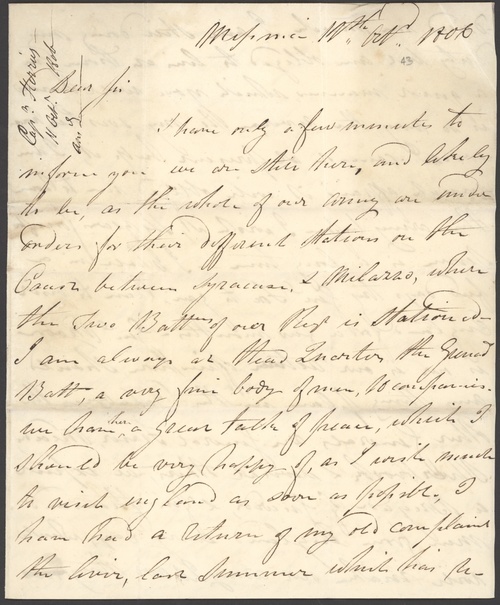 Messina 10th Octr 1806
43
Capn Harris
10 Octr 1806
Dear Sir
I have only a few minutes to
inform you we are still here, and likely
to be, as the whole of our army are under
orders for their different Stations on the
Coast between Syracuse, & Milazzo, where
the two Battns of our Regt is Stationed -
I am always at Head Quarters the Grenad
Batt, a very fine body of men, 10 companies.
we have here a great talk of peace, which I
should be very happy of, as I wish much
to visit england as soon as possible, I
have had a return of my old complaint
the liver, last Summer which has re-